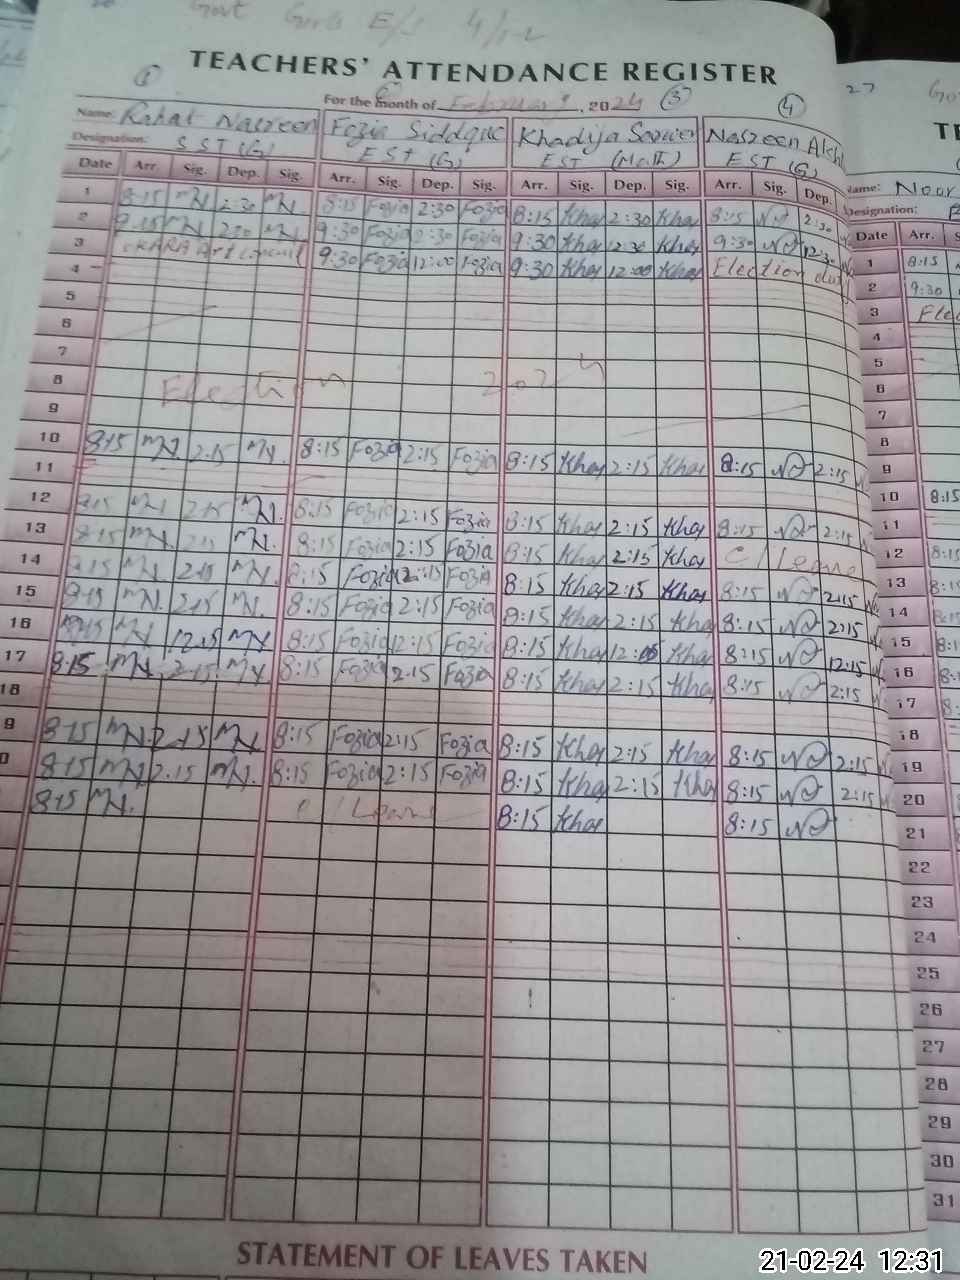 Govt Girls E/S 4/1-L
TEACHERS' ATTENDANCE REGISTER
For the month of February, 2024
1 2 3 4
Name: Rahat Nasreen Fozia Siddque Khadija Nasreen
Designation: SST (G) EST (G) EST (Math) EST (G)
Date Arr. Sig. Dep. Sig. Arr. Sig. Dep. Sig. Arr. Sig. Dep. Sig. Arr. Sig. Dep.
1 8:15 MN 2:30 MN 8:15 Fozia 2:30 Fozia 8:15 Khay 2:30 Khay 8:15 2:30
2 9:15 MN MN 9:30 Fozia Fozia 9:30 Khay 12:30 Khay 9:30 12:30
3 OKARA Art Council 9:30 Fozia 12:00 Fozia 9:30 Khay 12:00 Khay Election duty
4
5
6
7
8 Election 2024
9
10 8:15 MN 2:15 MN 8:15 Fozia 2:15 Fozia 8:15 Khay 2:15 Khay 8:15 2:15
11
12 8:15 MN 2:15 MN 8:15 Fozia 2:15 Fozia 8:15 Khay 2:15 Khay 8:15 2:15
13 8:15 MN 2:15 MN 8:15 Fozia 2:15 Fozia 8:15 Khay 2:15 Khay C/Leave
14 8:15 MN 2:15 MN 8:15 Fozia 2:15 Fozia 8:15 Khay 2:15 Khay 8:15 2:15
15 8:15 MN 2:15 MN 8:15 Fozia 2:15 Fozia 8:15 Khay 2:15 Khay 8:15 2:15
16 8:15 MN 12:15 MN 8:15 Fozia 12:15 Fozia 8:15 Khay Khay 8:15 12:15
17 8:15 MN 2:15 MN 8:15 Fozia 2:15 Fozia 8:15 Khay 2:15 Khay 8:15 2:15
18
9 8:15 MN 2:15 MN 8:15 Fozia 2:15 Fozia 8:15 Khay 2:15 Khay 8:15 2:15
0 8:15 MN 2:15 MN 8:15 Fozia 2:15 Fozia 8:15 Khay 2:15 Khay 8:15 2:15
8:15 MN C/Leave 8:15 Khay 8:15
STATEMENT OF LEAVES TAKEN
27
TE
Name: Noor
Designation:
Date Arr. S
1 8:15
2 9:30
3 Elec
4
5
6
7
8
9
10 8:15
11
12 8:15
13 8:15
14 8:15
15 8:1
16 8:
17 8:
18
19
20
21
22
23
24
25
26
27
28
29
30
31
21-02-24 12:31